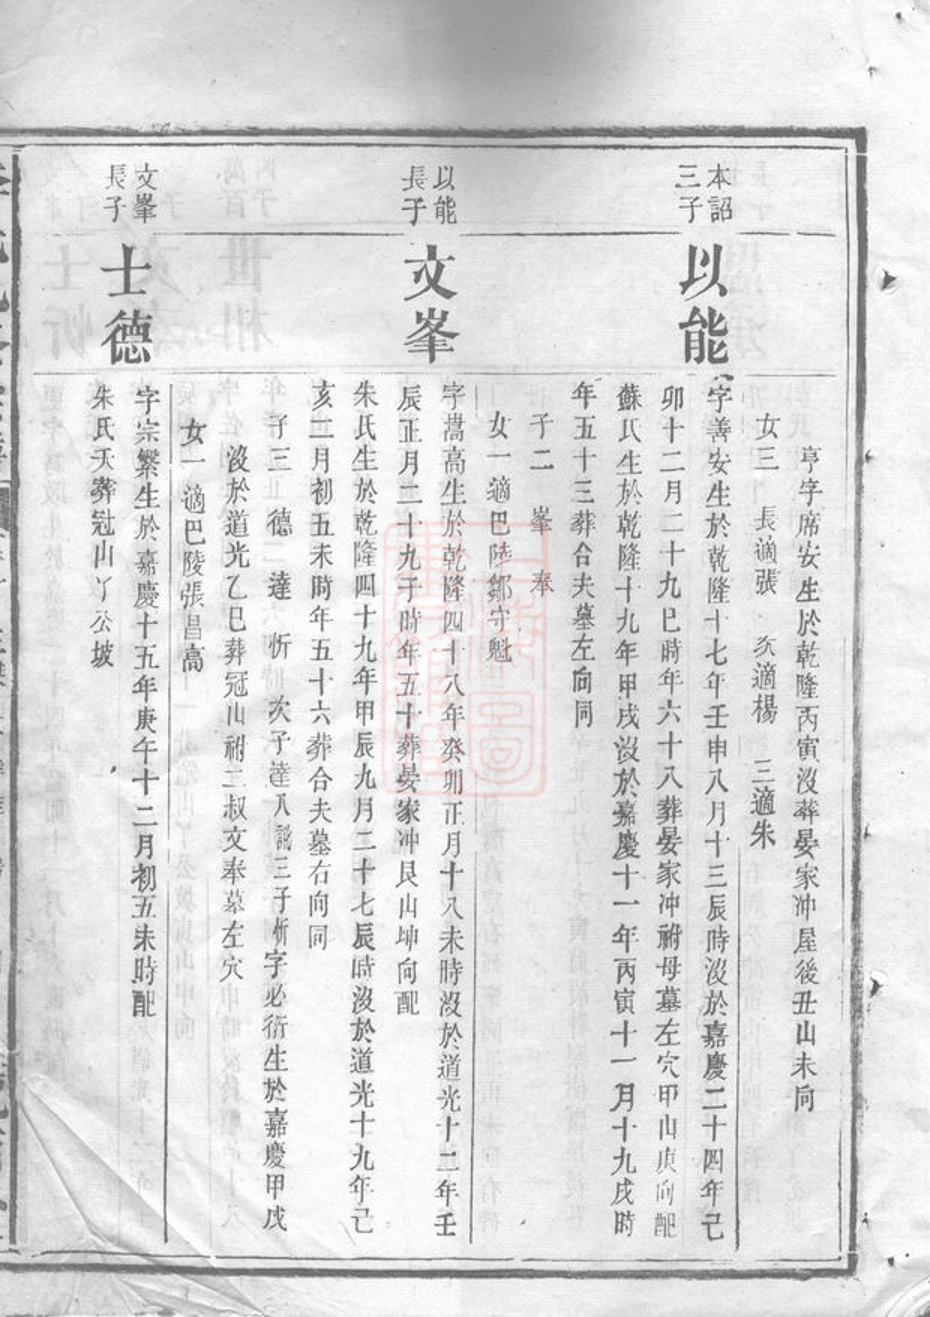 亨字席安生於乾隆丙寅沒葬晏家沖屋後丑山未向
女三 長適張 次適楊 三適朱
本詔
三子
以能
字善安生於乾隆十七年壬申八月十三辰時沒於嘉慶二十四年己
卯十二月二十九巳時年六十八葬晏家沖祔母墓左穴甲山庚向配
蘇氏生於乾隆十九年甲戌沒於嘉慶十一年丙寅十一月十九戌時
年五十三葬合夫墓左向同
子二 峯 奉
女一 適巴陵鄒守魁
以能
長子
文峯
字嵩高生於乾隆四十八年癸卯正月十八未時沒於道光十二年壬
辰正月二十九子時年五十葬晏家冲艮山坤向配
朱氏生於乾隆四十九年甲辰九月二十七辰時沒於道光十九年己
亥二月初五未時年五十六葬合夫墓右向同
子三 德 達 忻 次子達八説三子忻字必衍生於嘉慶甲戌
沒於道光乙巳葬冠山祔二叔文奉墓左穴
女一 適巴陵張昌高
文峯
長子
士德
字宗繁生於嘉慶十五年庚午十二月初五未時配
朱氏夭葬冠山丫公坡